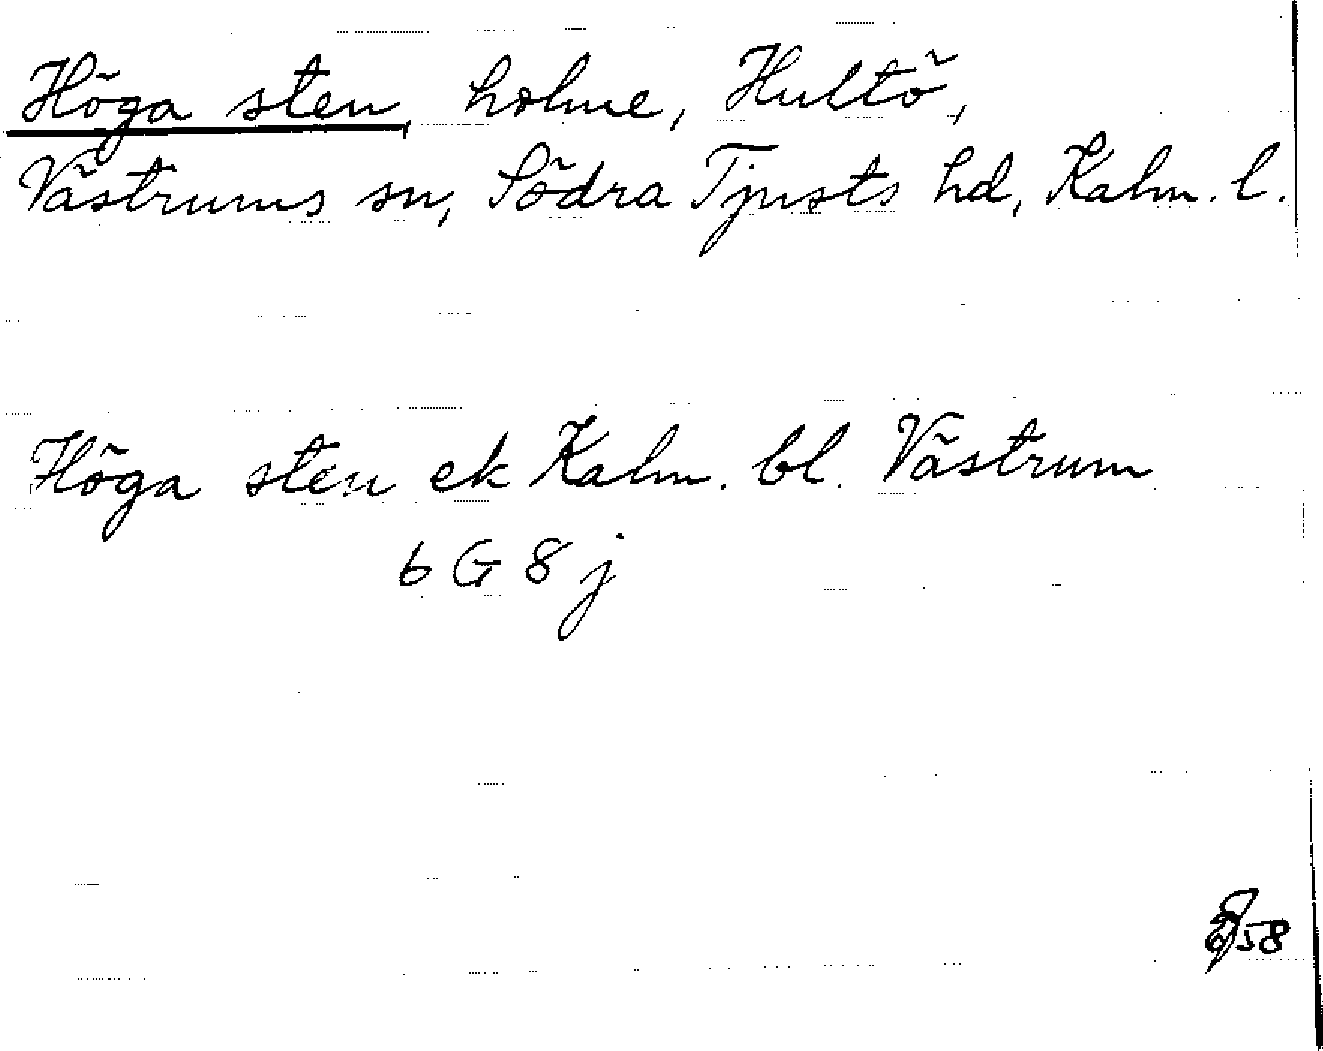 Höga sten, holme, Hultö,
Västrums sn, Södra Tjusts hd, Kalm. l.
Höga sten ek Kalm. bl. Västrum
6 G 8 j
58